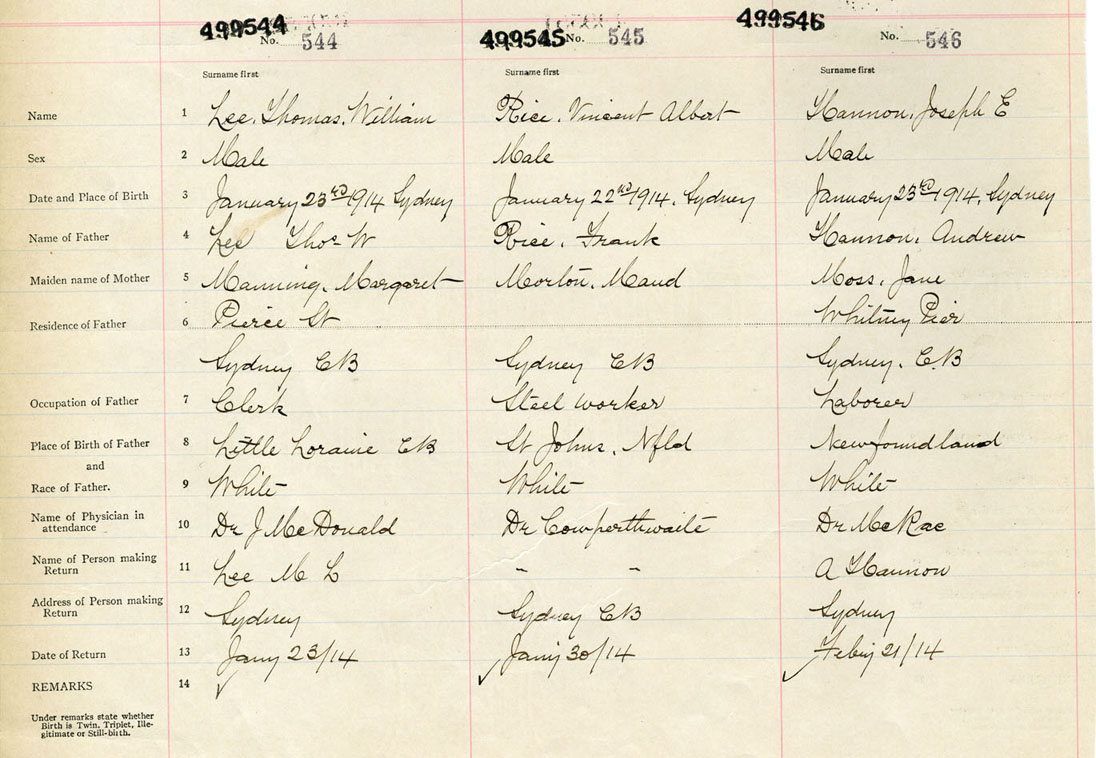 499544 499545 499546
No. 544 No. 545 No. 546
Surname first Surname first Surname first
Name 1 Lee, Thomas, William Rice, Vincent Albert Hannon, Joseph E
Sex 2 Male Male Male
Date and Place of Birth 3 January 23rd 1914 Sydney January 22nd 1914, Sydney January 23rd 1914, Sydney
Name of Father 4 Lee Thos W Rice, Frank Hannon, Andrew
Maiden name of Mother 5 Manning, Margaret Morton, Maud Moss, Jane
Residence of Father 6 Pierce St Whitney Pier
Sydney CB Sydney CB Sydney, C.B
Occupation of Father 7 Clerk Steel worker Laborer
Place of Birth of Father 8 Little Loraine CB St Johns, Nfld Newfoundland
and
Race of Father. 9 White White White
Name of Physician in
attendance 10 Dr J McDonald Dr Cowperthwaite Dr McRae
Name of Person making
Return 11 Lee M L " " A Hannon
Address of Person making
Return 12 Sydney Sydney CB Sydney
Date of Return 13 Jany 23/14 Jany 30/14 Feby 21/14
REMARKS 14
Under remarks state whether
Birth is Twin, Triplet, Ille-
gitimate or Still-birth.